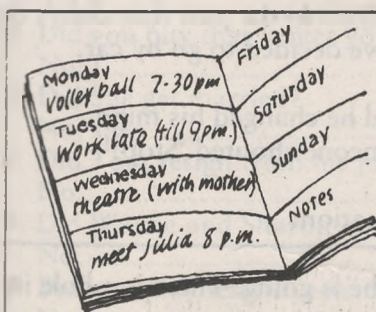 Monday
Volley ball 7-30pm
Tuesday
Work late (till 9pm.)
Wednesday
theatre (with mother)
Thursday
meet Julia 8 p.m.
Friday
Saturday
Sunday
Notes